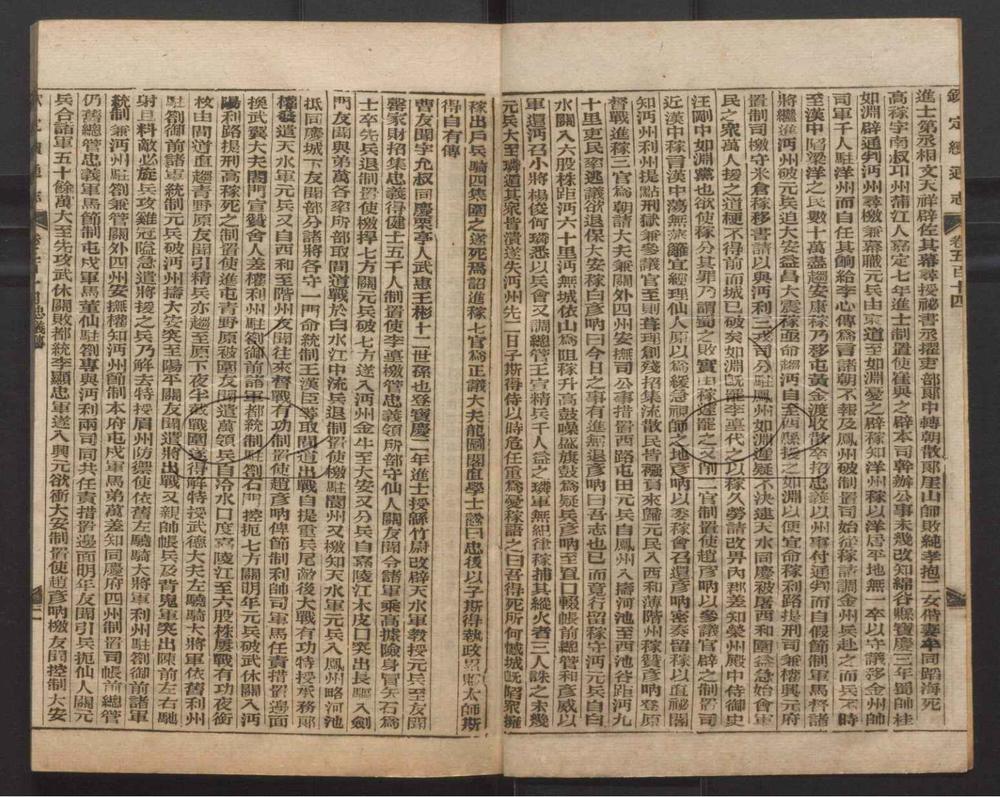 欽定續通志 卷五百十四
進士第丞相文天祥辟佐其幕尋授祕書丞擢吏部郎中轉朝散郎崖山師敗純孝抱二女偕妻牟同蹈海死
高稼字南叔邛州蒲江人嘉定七年進士制置使崔與之辟本司幹辦公事未幾改知綿谷縣寶慶三年蜀帥桂
如淵辟通判沔州尋檄兼幕職元兵由東道至如淵憂之辟稼知洋州稼以洋居平地無一卒以守議莎金州帥
司軍千人駐洋州而自任其餉給李心傳為言諸朝不報及鳳州破制置司始從稼請調金州兵赴之而兵不時
至漢中陷梁洋之民數十萬盡趨安康稼乃移屯黃金渡收散卒招忠義以州事付通判而自假節制軍馬督諸
將繼進沔州破元兵迫大安益昌大震稼亟命趨沔自至西縣援之如淵以便宜命稼利路提刑司兼權興元府
置制司檄守米倉稼移書請以與沔利三戎司分駐鳳州如淵遲疑不決逮天水同慶被屠西和圍益急始會軍
民之眾萬人援之道梗不得前而城已破矣如淵既罷李𡌴代之以稼久勞請改畀內郡差知榮州殿中侍御史
汪剛中如淵黨也欲使稼分其罪乃謂蜀之敗實由稼遂罷之又削二官制置使趙彥吶以參議官辟之制置司
近漢中稼言漢中蕩無藩籬宜經理仙人原以為緩急視師之地彥吶以委稼會召還彥吶密奏留稼以直祕閣
知沔州利州提點刑獄兼參議官至則葺理創殘招集流散民皆襁負來歸元兵入西和薄階州稼贊彥吶登原
督戰進稼三官為朝請大夫兼關外四州安撫司公事措置西路屯田元兵自鳳州入擣河池至西池谷距沔九
十里吏民率逃議欲退保大安稼白彥吶曰今日之事有進無退彥吶曰吾志也已而竟行留稼守沔元兵自白
水關入六股株距沔六十里沔無城依山為阻稼升高鼓譟盛旗鼓為疑兵彥吶至罝口輟帳前總管和彥威以
軍還沔召小將楊俊何璘悉以兵會又調總管王宣精兵千人益之璘軍無紀律稼捕其縱火者三人誅之未幾
元兵大至璘遁其眾皆潰遂失沔州先一日子斯得侍以時危任重為憂稼語之曰吾得死所何憾城既昭眾擁
稼出戶兵騎四集圍之遂死焉詔進稼七官為正議大夫龍圖閣直學士謚曰忠後以子斯得執政累贈太師斯
得自有傳
曹友聞字允叔同慶栗亭人武惠王彬十二世孫也登寶慶二年進士授綿竹尉改辟天水軍教授元兵至友聞
罄家財招集忠義得健士五千人制置使李𡌴檄管忠義領所部守仙人關友聞令諸軍乘高據險身冒矢石為
士卒先兵退制置使檄捍七方關元兵破七方遂入沔州金牛至大安又分兵自嘉陵江木皮口突出長驅入劍
門友聞與弟萬各率所部取間道戰於白水江中流兵退制置使檄駐閬州又檄知天水軍元兵入鳳州略河池
抵同慶城下友聞部分諸將各守一門命統制王漢臣等取間道出戰自提重兵尾敵後大戰有功特授承務郎
權發遣天水軍元兵又自西和至階州友聞往來督戰有功制置使趙彥吶俾節制利帥司軍馬任責措置邊面
換武翼大夫閤門宣贊舍人差權利州駐劄御前諸軍都統制駐劄石門控扼七方關明年元兵破武休關入沔
陽利路提刑高稼死之制置使進屯青野原被圍友聞遣萬領兵自冷水口度嘉陵江至六股株屢戰有功夜銜
枚由間道直趨青野原友聞引精兵亦趨至原下夜半截戰圍遂得解特授武德大夫左驍騎大將軍依舊利州
駐劄御前諸軍統制元兵破沔州擣大安突至陽平關友聞遣將出戰又親帥帳兵及背嵬軍突出陳前左右馳
射且料敵必旋兵攻雞冠隘急遣將援之兵乃解去特授眉州防禦使依舊左驍騎大將軍利州駐劄御前諸軍
統制兼沔州駐劄兼管關外四州安撫權知沔州節制本府屯戍軍馬弟萬差知同慶府四州制置司帳前總管
仍舊總管忠義軍馬節制屯戍軍馬董仙駐劄專與沔利兩司同共任責措置邊面明年友聞引兵扼仙人關元
兵合諸軍五十餘萬大至先攻武休關敗都統李顯忠軍遂入興元欲衝大安制置使趙彥吶檄友聞控制大安